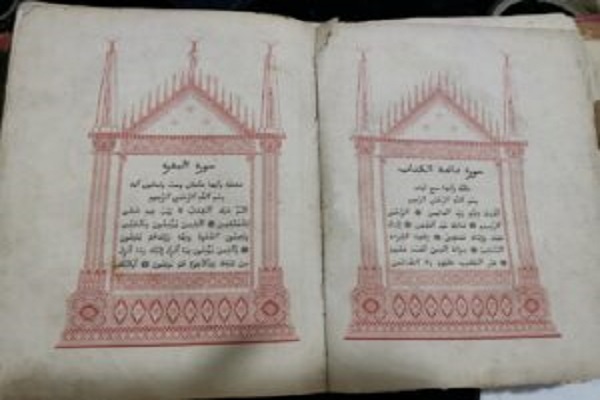 سورة فاتحة الكتاب
مكية وآيها سبع آيات
بسم الله الرحمن الرحيم
الحمد لله رب العالمين الرحمن
الرحيم مالك يوم الدين إياك
نعبد وإياك نستعين اهدنا الصراط
المستقيم صراط الذين أنعمت عليهم
غير المغضوب عليهم ولا الضالين
سورة البقرة
وآيها مائتان وست وثمانون آية
بسم الله الرحمن الرحيم
الم ذلك الكتاب لا ريب فيه هدى
للمتقين الذين يؤمنون بالغيب
ويقيمون الصلوة ومما رزقناهم ينفقون
والذين يؤمنون بما أنزل إليك وما أنزل
من قبلك وبالآخرة هم يوقنون أولئك